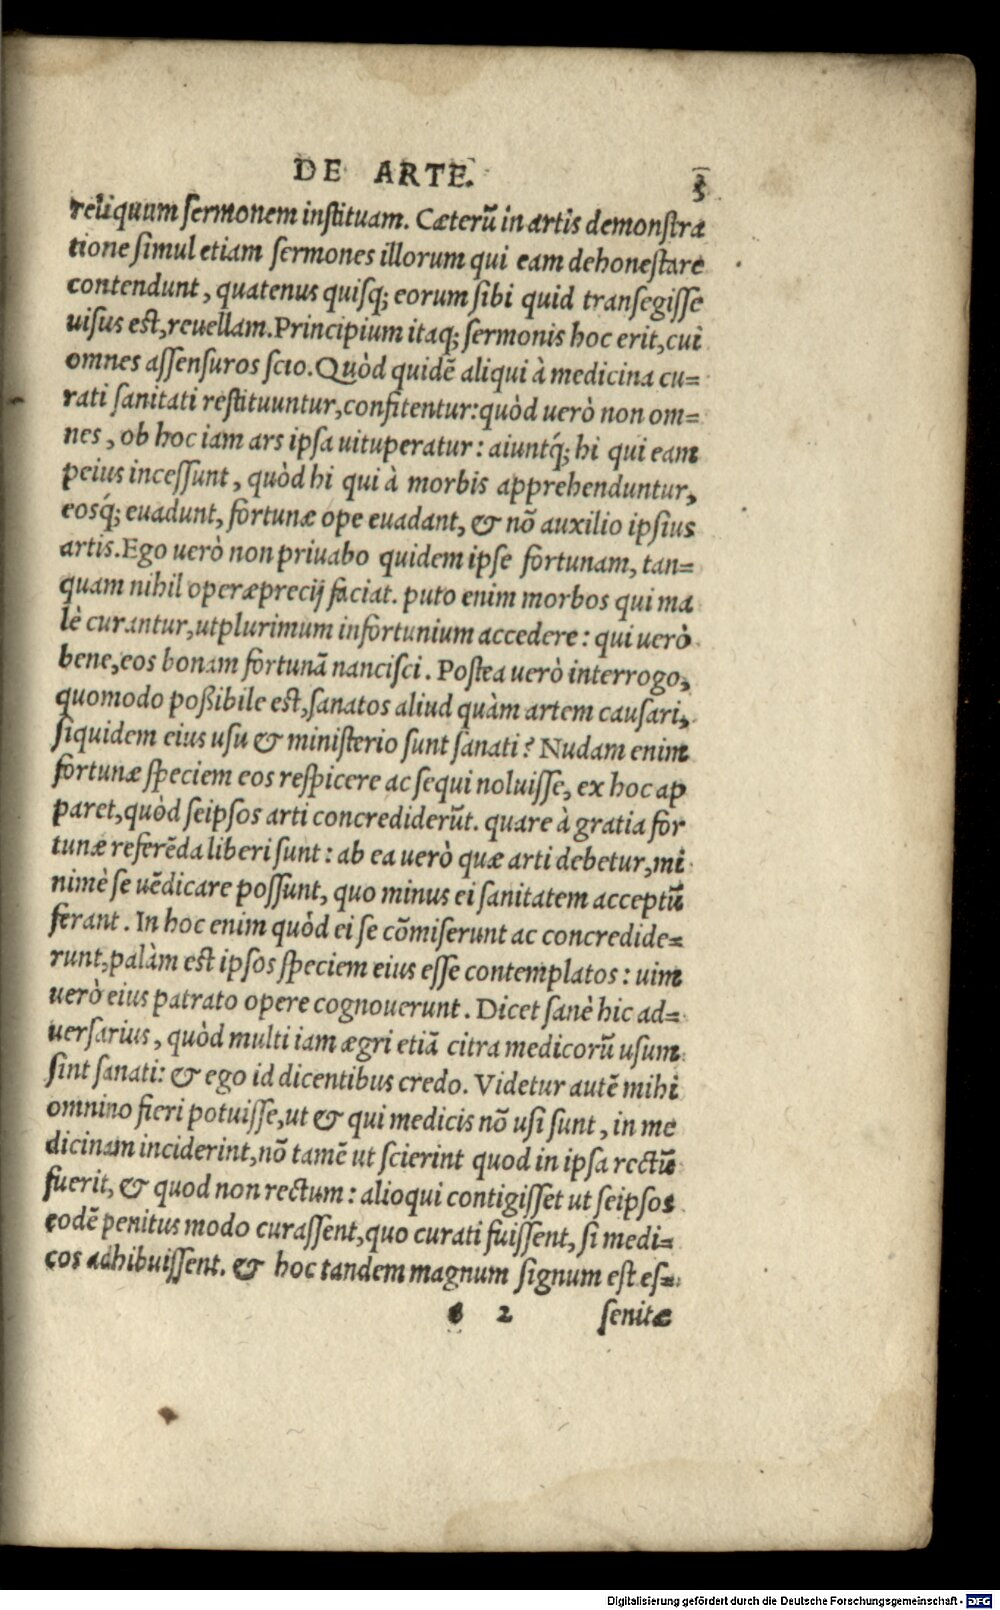 DE ARTE. 3
reliquum sermonem instituam. Cæterũ in artis demonstra
tione simul etiam sermones illorum qui eam dehonestare
contendunt, quatenus quisq; eorum sibi quid transegisse
uisus est, reuellam. Principium itaq; sermonis hoc erit, cui
omnes assensuros scio. Quòd quidẽ aliqui à medicina cu=
rati sanitati restituuntur, confitentur: quòd uerò non om=
nes, ob hoc iam ars ipsa uituperatur: aiuntq́; hi qui eam
peius incessunt, quòd hi qui à morbis apprehenduntur,
eosq́; euadunt, fortunæ ope euadant, & nõ auxilio ipsius
artis. Ego uerò non priuabo quidem ipse fortunam, tan=
quam nihil operæprecij faciat. puto enim morbos qui ma
lè curantur, utplurimum infortunium accedere: qui uerò
bene, eos bonam fortunã nancisci. Postea uerò interrogo,
quomodo poßibile est, sanatos aliud quàm artem causari,
siquidem eius usu & ministerio sunt sanati? Nudam enim
fortunæ speciem eos respicere ac sequi noluisse, ex hoc ap
paret, quòd seipsos arti concrediderũt. quare à gratia for
tunæ referẽda liberi sunt: ab ea uerò quæ arti debetur, mi
nimè se uẽdicare possunt, quo minus ei sanitatem acceptũ
ferant. In hoc enim quòd ei se cõmiserunt ac concredide=
runt, palàm est ipsos speciem eius esse contemplatos: uim
uerò eius patrato opere cognouerunt. Dicet sanè hic ad=
uersarius, quòd multi iam ægri etiã citra medicorũ usum
sint sanati: & ego id dicentibus credo. Videtur autẽ mihi
omnino fieri potuisse, ut & qui medicis nõ usi sunt, in me
dicinam inciderint, nõ tamẽ ut scierint quod in ipsa rectũ
fuerit, & quod non rectum: alioqui contigisset ut seipsos
eodẽ penitus modo curassent, quo curati fuissent, si medi=
cos adhibuissent. & hoc tandem magnum signum est es=
2 senitæ
Digitalisierung gefördert durch die Deutsche Forschungsgemeinschaft - DFG